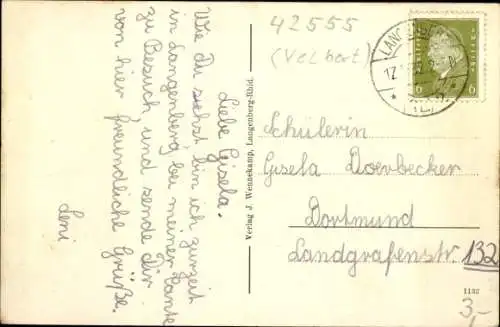 Liebe Gisela.
Wie Du siehst, bin ich zurzeit
in Langenberg bei meiner Tante
zu Besuch und sende Dir
von hier freundliche Grüße.
Leni
Verlag J. Wennekamp, Langenberg-Rhld.
42555
(Velbert)
17.
6 6
Schülerin
Gisela Doerbecker
Dortmund
Landgrafenstr. 132
1132
3,-